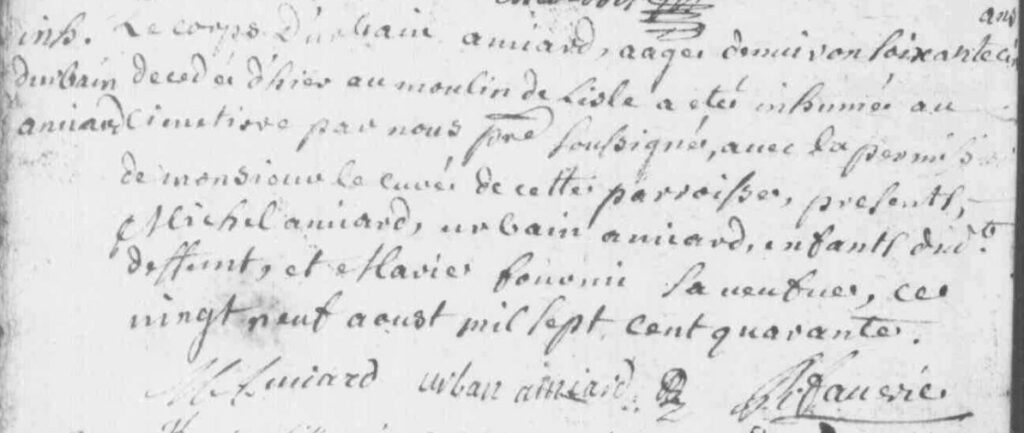 ans
inh. Le corps d'urbain amiard, aagé d'environ soixante cin
d'urbain decedé d'hier au moulin de Lisle a eté inhumé au
amiard cimetiere par nous pre soussigné, avec la permiss
de monsieur le curé de cette parroisse, presents,
Michel amiard, urbain amiard, enfants dud.
deffunt, et Marie fournii sa veufue, ce
vingt neuf aoust mil sept cent quarante.
M amiard urban amiard